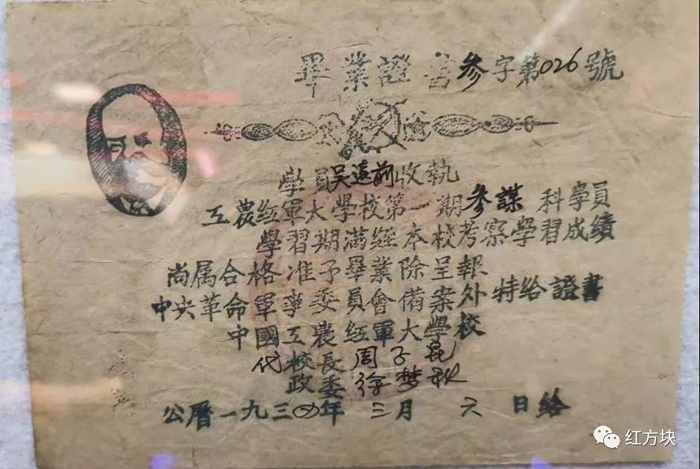 畢業證書參字第026號
學員吴遠前收執
工農红軍大學校第一期參謀科學員
學習期滿經本校考察學習成績
尚属合格准予畢業除呈報
中央革命軍事委員會備案外特给證書
中國工農红軍大學校
代校長周子昆
政委徐梦秋
公曆一九三四年三月六日给
红方块